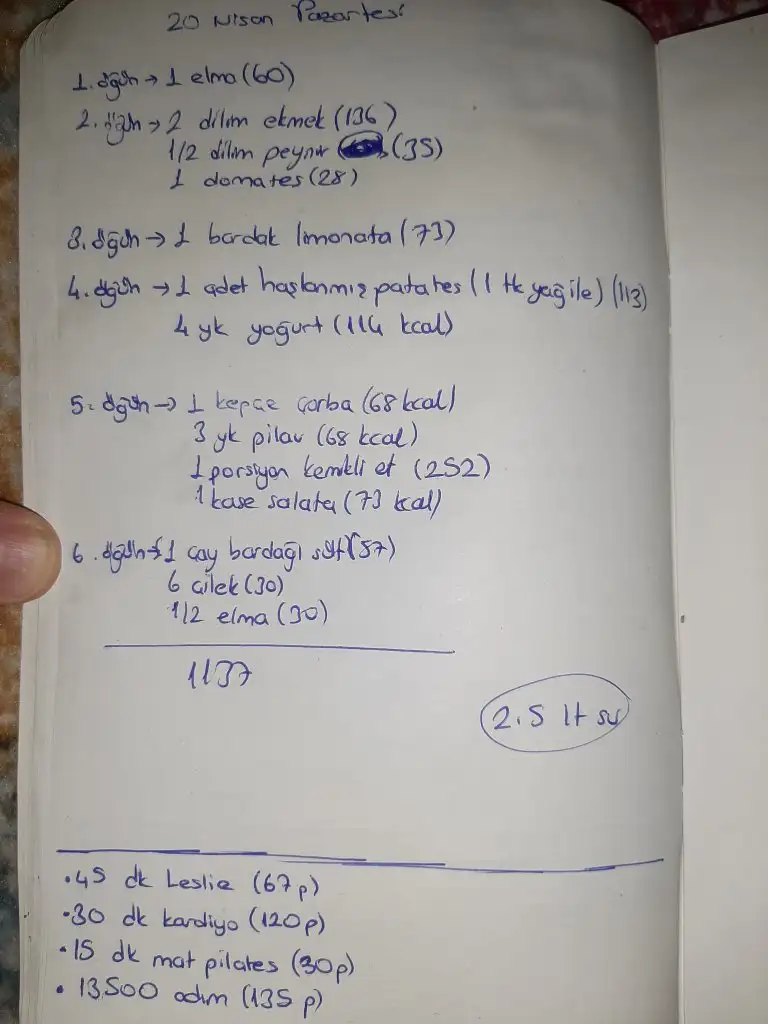 20 Nisan Pazartesi
1. öğün → 1 elma (60)
2. öğün → 2 dilim ekmek (136)
1/2 dilim peynir (35)
1 domates (28)
3. öğün → 1 bardak limonata (73)
4. öğün → 1 adet haşlanmış patates (1 tk yağ ile) (113)
4 yk yoğurt (114 kcal)
5. öğün → 1 kepçe çorba (68 kcal)
3 yk pilav (68 kcal)
1 porsiyon kemikli et (252)
1 kase salata (73 kcal)
6. öğün → 1 çay bardağı süt (57)
6 çilek (30)
1/2 elma (30)
1137
2.5 lt su
• 45 dk Leslie (67 p)
• 30 dk kardiyo (120 p)
• 15 dk mat pilates (30 p)
• 13.500 adım (135 p)